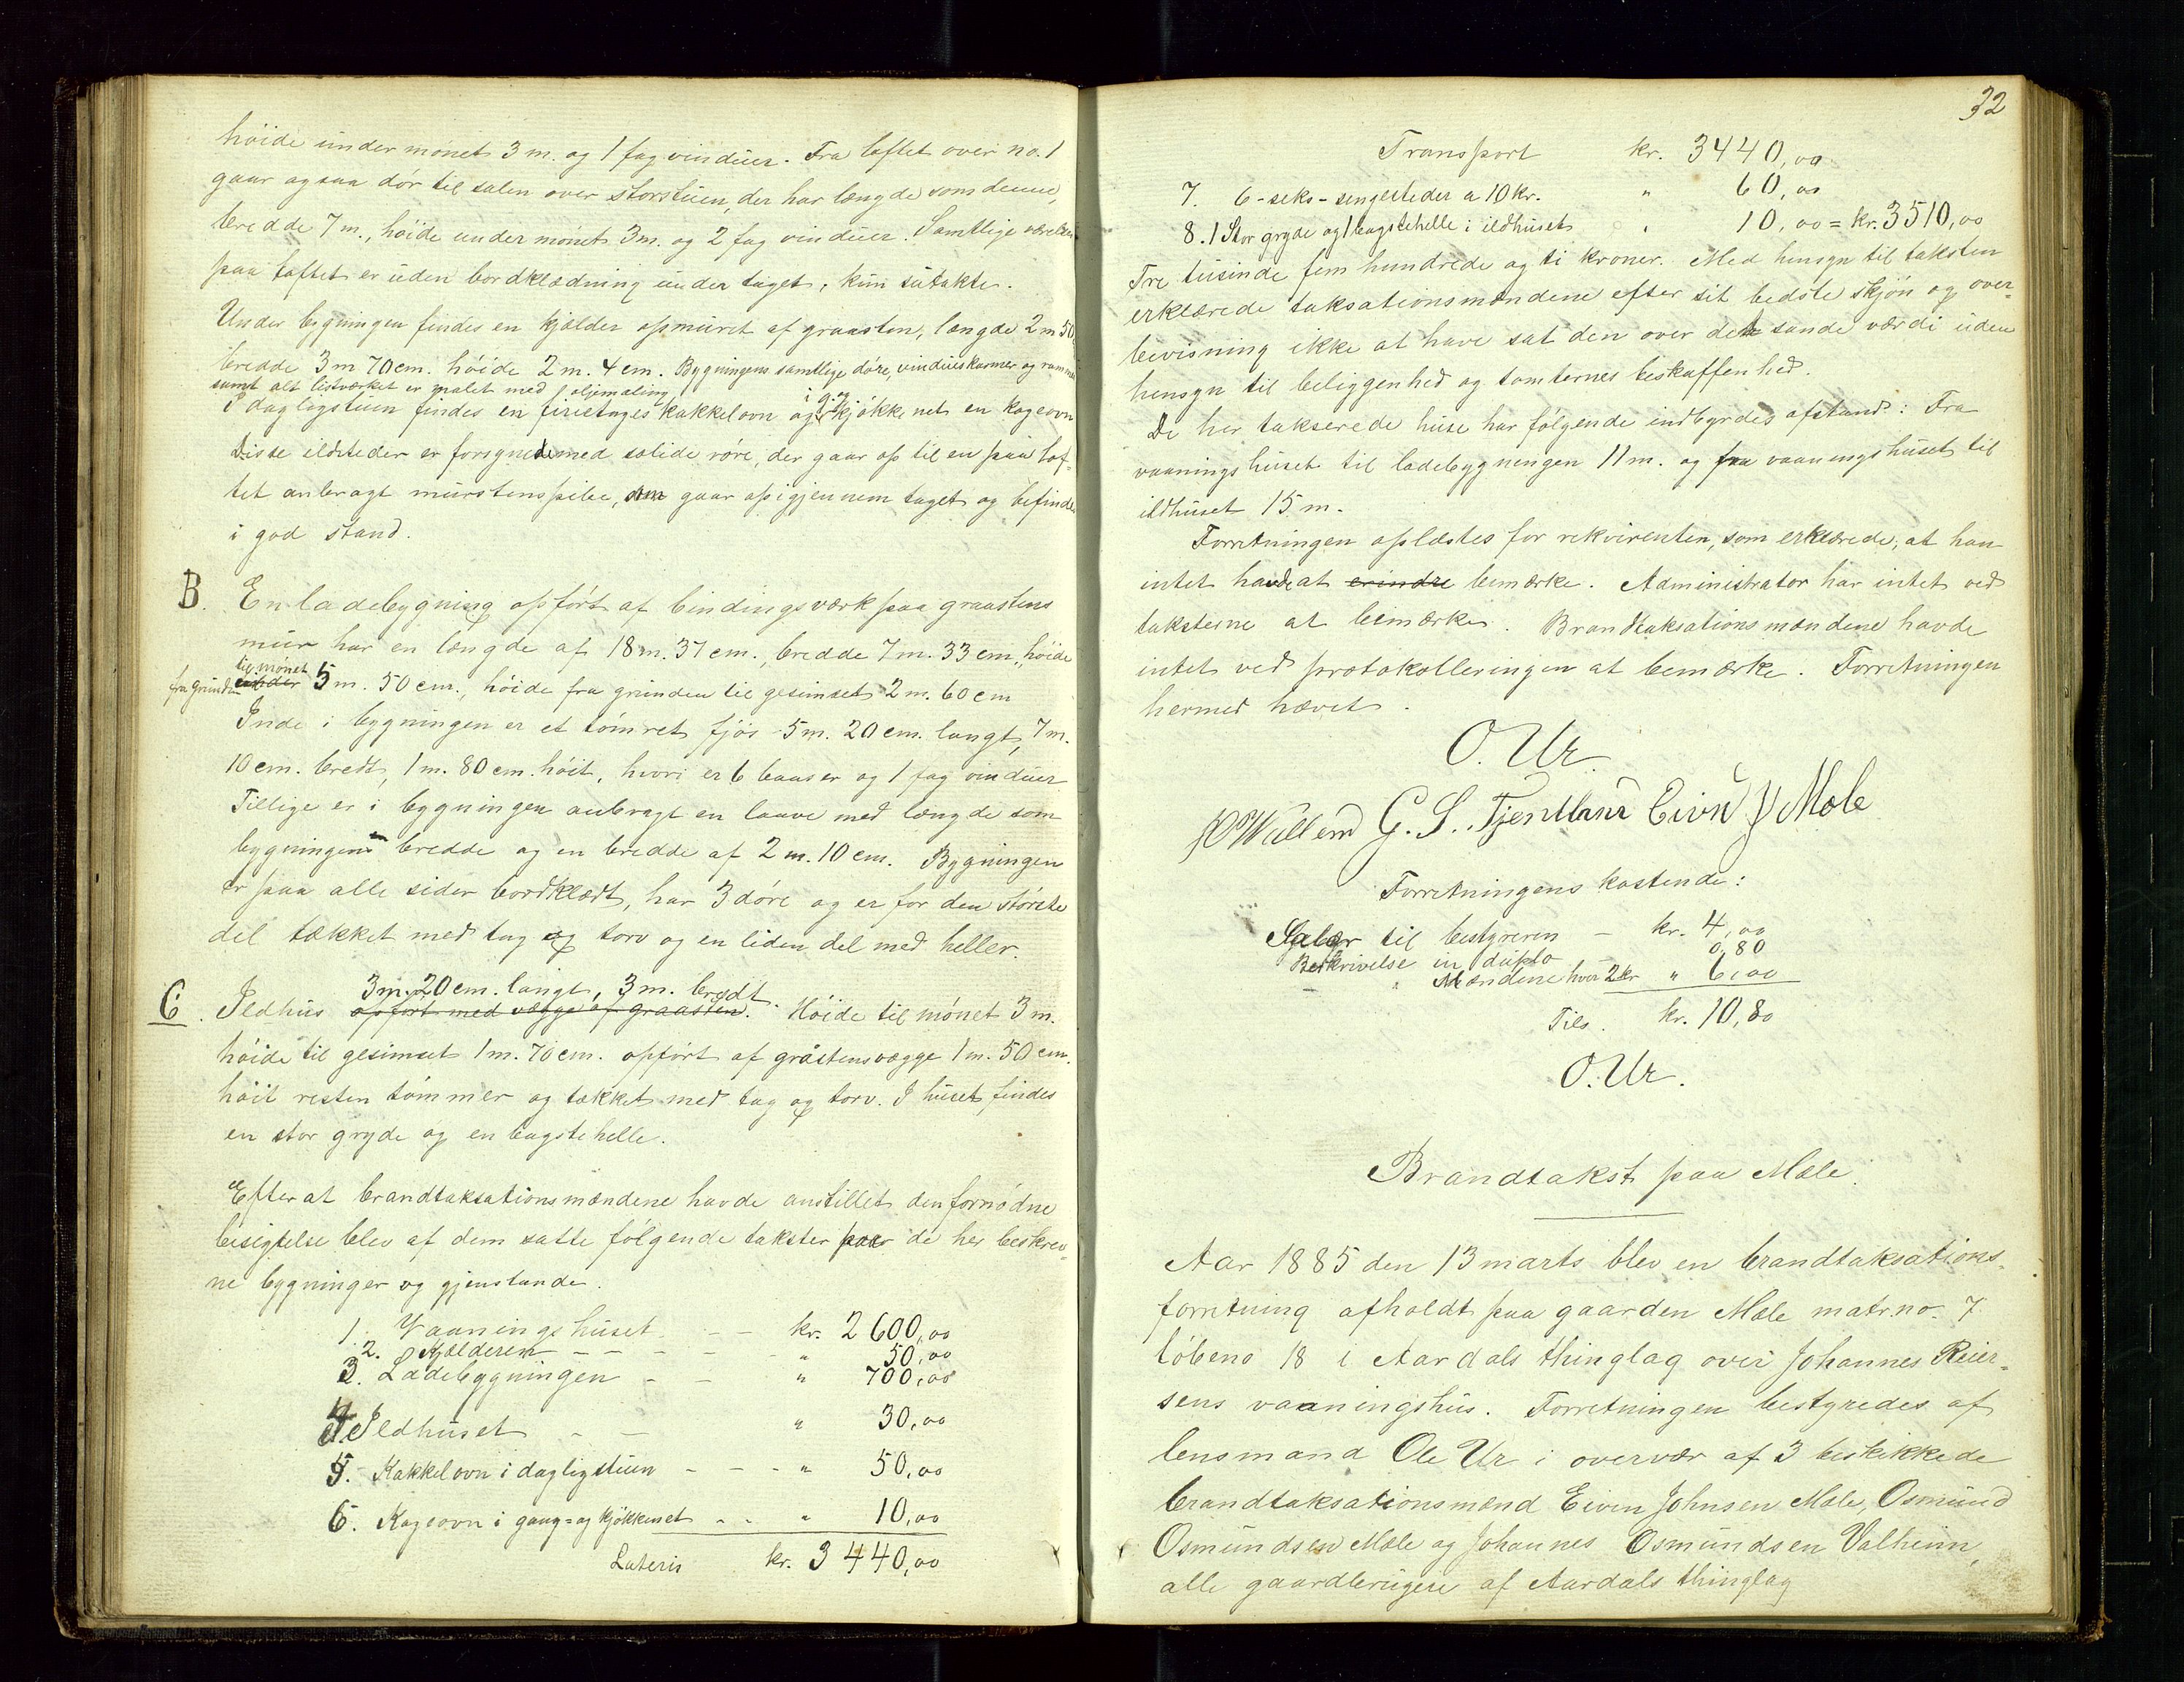 höide under mönet 3 m. og 1 fag vinduer. Fra loftet over no. 1
gaar ogsaa dör til salen over storstuen, der har længde som denne,
bredde 7 m., höide under mönet 3 m. og 2 fag vinduer. Samtlige værelser
paa loftet er uden bordklædning under taget, kun sutakte.
Under bygningen findes en kjælder opmuret af graasten, længde 2 m 50
bredde 3 m 70 cm. höide 2 m. 4 cm. Bygningens samtlige döre, vindueskarmer og rammer
samt alt listværket er malet med oljemaling
I dagligstuen findes en firietages kakkelovn og i g. og kjökkenet en kogeovn
Disse ildsteder er forsynede med solide röre, der gaar op til en paa lof-
tet anbragt murstenspibe, som gaar op igjennem taget og befindes
i god stand.
B. En ladebygning opfört af bindingsværk paa graastens
mur har en længde af 18 m. 37 cm., bredde 7 m. 33 cm., höide
fra grunden til mönet under 5 m. 50 cm., höide fra grunden til gesimset 2 m. 60 cm
Inde i bygningen er et tömret fjös 5 m. 20 cm. langt, 7 m.
10 cm. bredt, 1 m. 80 cm. höit, hvori er 6 baaser og 1 fag vinduer
Tillige er i bygningen anbragt en laave med længde som
bygningens bredde og en bredde af 2 m. 10 cm. Bygningen
er paa alle sider bordklædt, har 3 döre og er for den störste
del tækket med tag og torv og en liden del med heller.
3 m. 20 cm. langt, 3 m. bredt.
C. Ildhus opfört med vægge af graasten. Höide til mönet 3 m.
höide til gesimset 1 m. 70 cm. opfört af gråstensvægge 1 m. 50 cm.
höit resten tömmer og tækket med tag og torv. I huset findes
en stor gryde og en bagstehelle.
Efter at brandtaksationsmændene havde anstillet den fornödne
besigtelse blev af dem satte fölgende takster paa de her beskrev-
ne bygninger og gjenstande.
1. Vaaningshuset - - kr. 2600,00
2. Kjælderen - - - - - " 50,00
3. Ladebygningen - - " 700,00
4. Ildhuset - - " 30,00
5. Kakkelovn i dagligstuen - - - " 50,00
6. Kogeovn i gang- og kjökkenet - - " 10,00
Lateris kr. 3440,00
32
Transport kr. 3440,00
7. 6 - seks - sengesteder a 10 kr. " 60,00
8. 1 Stor gryde og 1 bagstehelle i ildhuset " 10,00 = kr. 3510,00
Tre tusinde fem hundrede og ti kroner. Med hensyn til taksten
erklærede taksationsmændene efter sit bedste skjön og over-
bevisning ikke at have sat den over den sande værdi uden
hensyn til beliggenhed og tomternes beskaffenhed.
De her takserede huse har fölgende indbyrdes afstand: Fra
vaaningshuset til ladebygningen 11 m. og fra vaaningshuset til
ildhuset 15 m.
Forretningen oplæstes for rekvirenten, som erklærede, at han
intet havde at erindre bemærke. Administrator har intet ved
taksterne at bemærke. Brandtaksationsmændene havde
intet ved protokolleringen at bemærke. Forretningen
hermed hævet.
O. Ur
G. S. Fjentland Eivn J Mæle
Forretningens kostende:
Salær til bestyreren - kr. 4,00
Beskrivelse in duplo 0,80
" Mændene hver 2 kr " 6,00
Tils. kr. 10,80
O. Ur.
Brandtakst paa Mæle.
Aar 1885 den 13 marts blev en brandtaksations-
forretning afholdt paa gaarden Mæle matr. no. 7
löbeno 18 i Aardals thinglag over Johannes Reier-
sens vaaningshus. Forretningen bestyredes af
lensmand Ole Ur i overvær af 3 beskikkede
brandtaksationsmænd Eiven Johnsen Mæle, Osmund
Osmundsen Mæle og Johannes Osmundsen Valheim,
alle gaardbrugere af Aardals thinglag